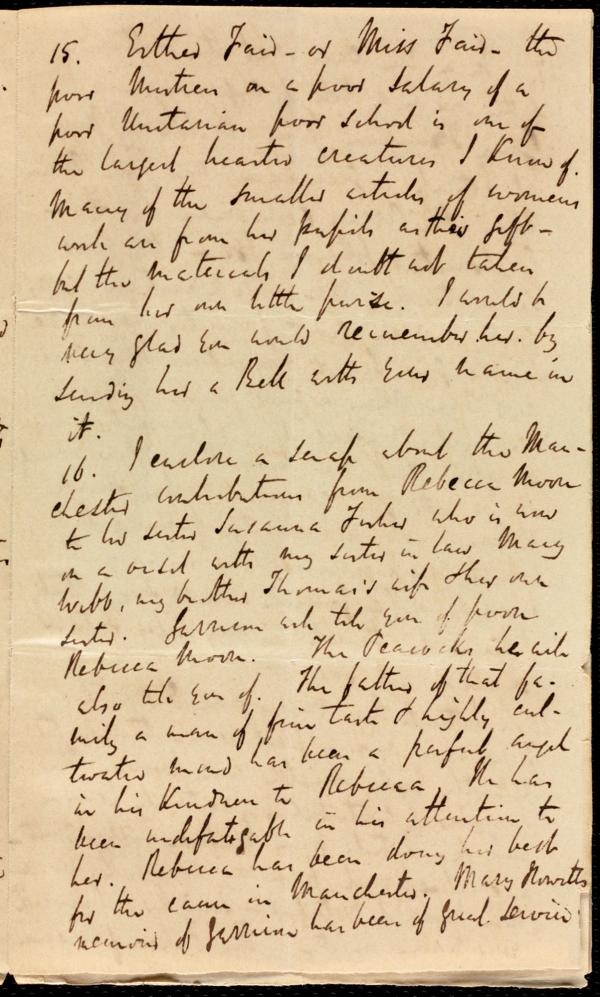 15. Esther Fair - or Miss Fair - the
poor Mistress on a poor salary of a
poor Unitarian poor school is one of
the largest hearted creatures I know of.
Many of the smaller articles of womens
work are from her pupils as their gift -
but the materials I doubt not taken
from her own little purse. I would be
very glad you would remember her by
sending her a Bell with your name in
it.
16. I enclose a scrap about the Man-
chester contributions from Rebecca Moore
to her sister Susanna Fisher who is now
on a visit with my sister in law Mary
Webb, my brother Thomas's wife & her own
sister. Garrison will tell you of poor
Rebecca Moore. The Peacocks he will
also tell you of. The father of that fa-
mily a man of fine taste & highly cul-
tivated mind has been a perfect angel
in his kindness to Rebecca. He has
been indefatigable in his attention to
her. Rebecca has been doing her best
for the cause in Manchester. Mary Howitts
memoir of Garrison has been of great service